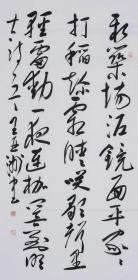 新築場泥鏡面平家家
打稻趁霜晴笑歌聲里
輕雷動一夜連枷響到明
古詩